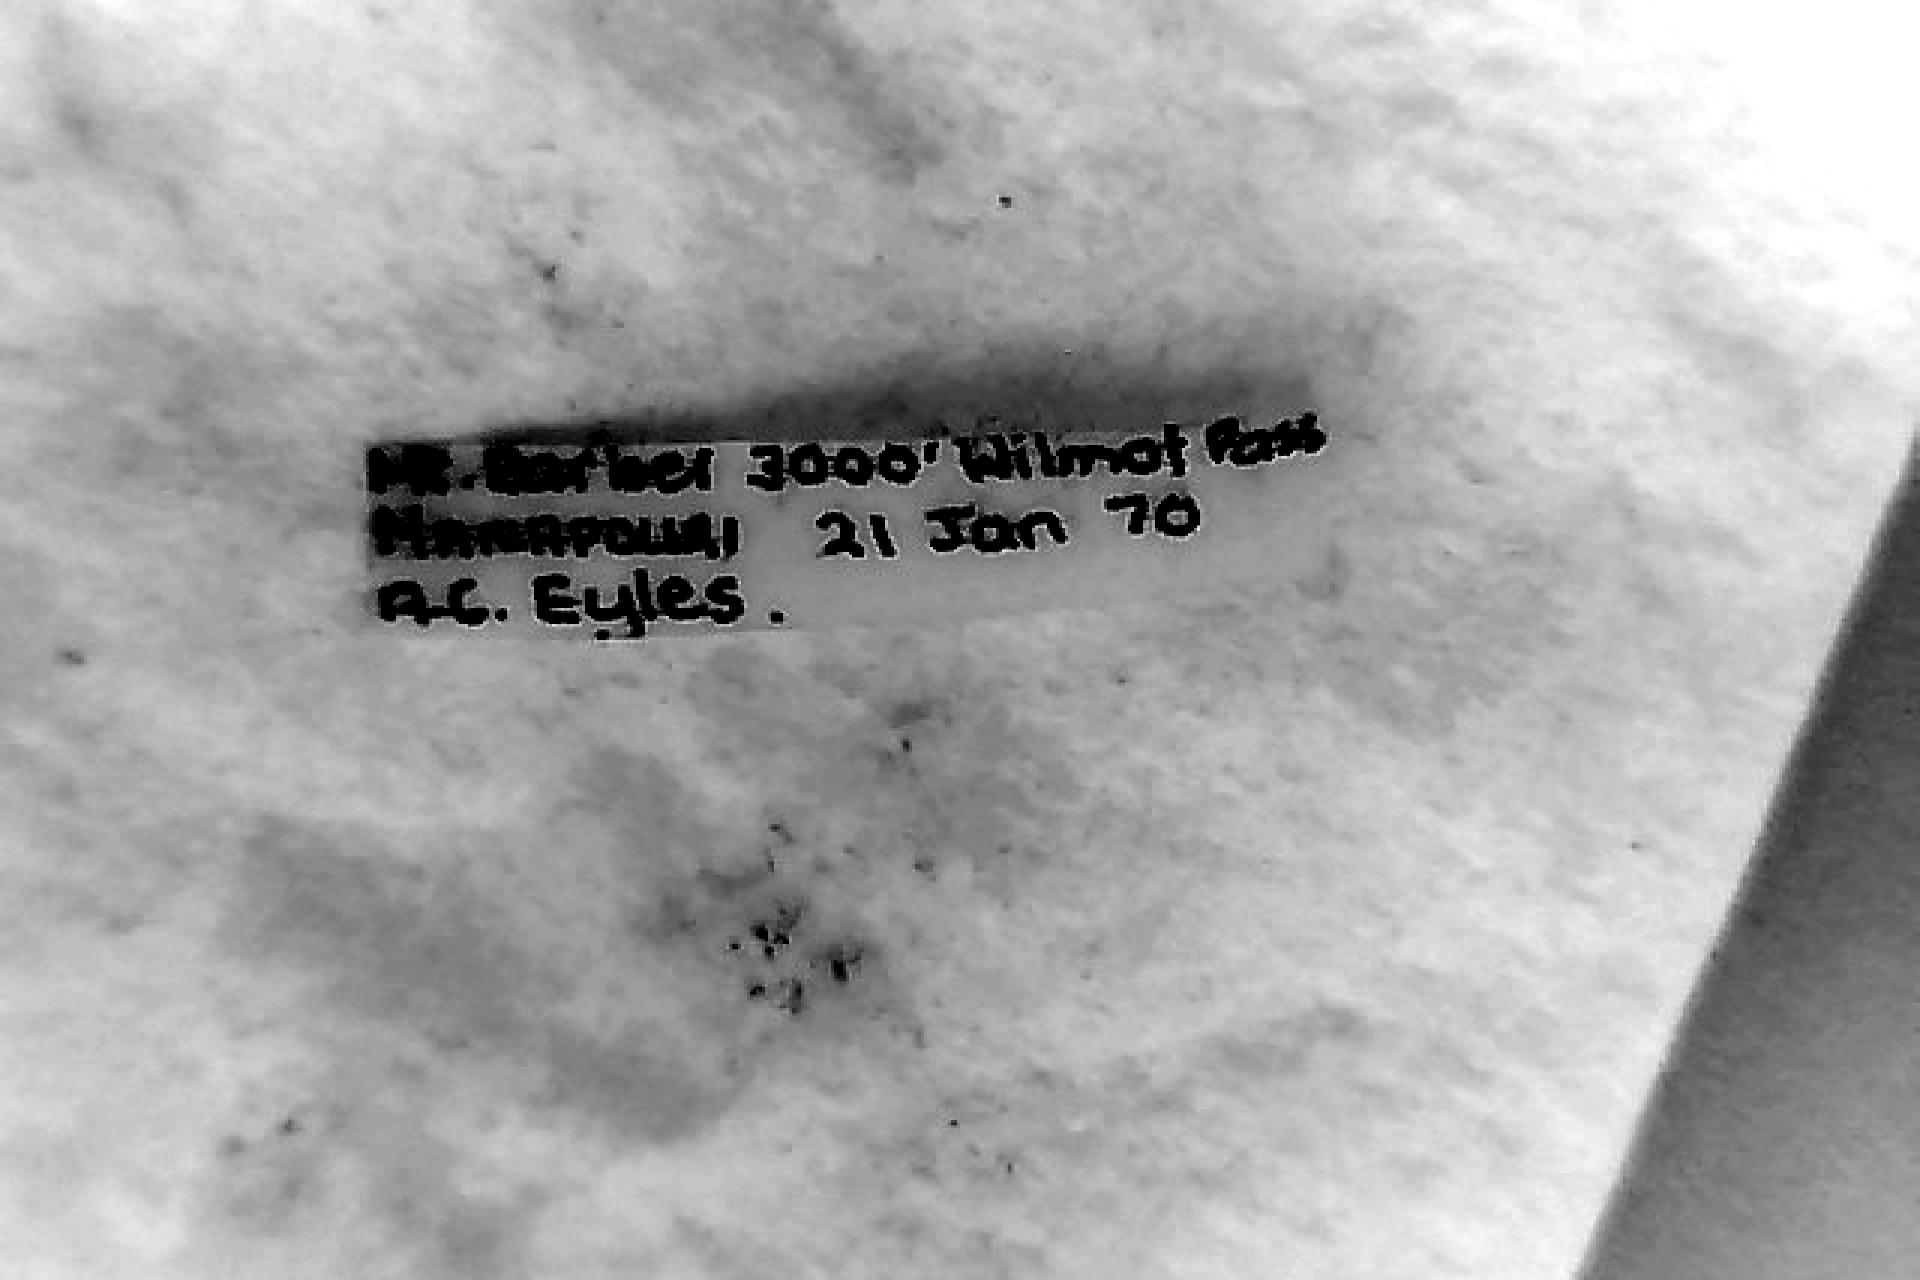 Mt. Barber 3000' Wilmot Pass
MANAPOURI 21 Jan 70
A.C. Eyles.